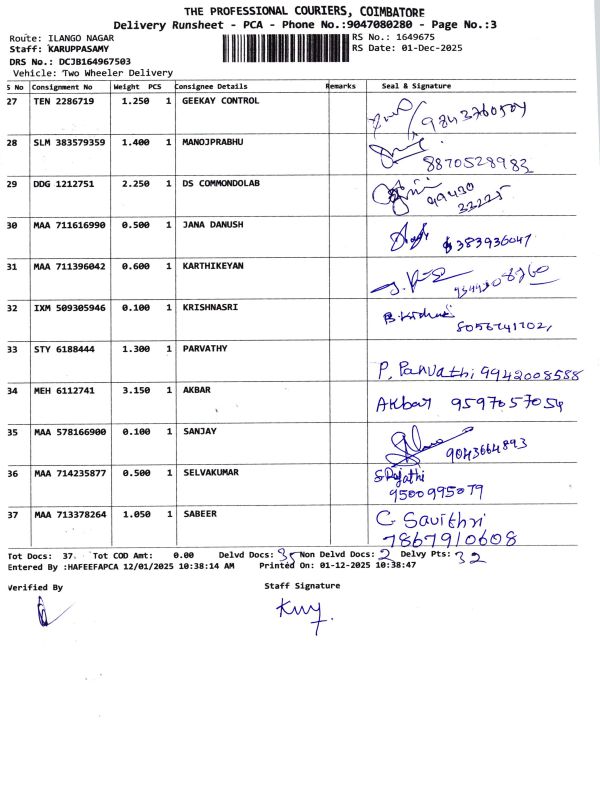 THE PROFESSIONAL COURIERS, COIMBATORE
Delivery Runsheet - PCA - Phone No.:9047080280 - Page No.:3
Route: ILANGO NAGAR RS No.: 1649675
Staff: KARUPPASAMY RS Date: 01-Dec-2025
DRS No.: DCJB164967503
Vehicle: Two Wheeler Delivery
S No Consignment No Weight PCS Consignee Details Remarks Seal & Signature
27 TEN 2286719 1.250 1 GEEKAY CONTROL 9843760504
28 SLM 383579359 1.400 1 MANOJPRABHU
8870528983
29 DDG 1212751 2.250 1 DS COMMONDOLAB
99430
22225
30 MAA 711616990 0.500 1 JANA DANUSH 8383936047
31 MAA 711396042 0.600 1 KARTHIKEYAN
32 IXM 509305946 0.100 1 KRISHNASRI
8056741702
33 STY 6188444 1.300 1 PARVATHY
P. Parvathi 9942008588
34 MEH 6112741 3.150 1 AKBAR Akbar 9597057054
35 MAA 578166900 0.100 1 SANJAY
9043664893
36 MAA 714235877 0.500 1 SELVAKUMAR
9500995079
37 MAA 713378264 1.050 1 SABEER C Savithri
7867910608
Tot Docs: 37 Tot COD Amt: 0.00 Delvd Docs: 35 Non Delvd Docs: 2 Delvy Pts: 32
Entered By :HAFEEFAPCA 12/01/2025 10:38:14 AM Printed On: 01-12-2025 10:38:47
Verified By Staff Signature